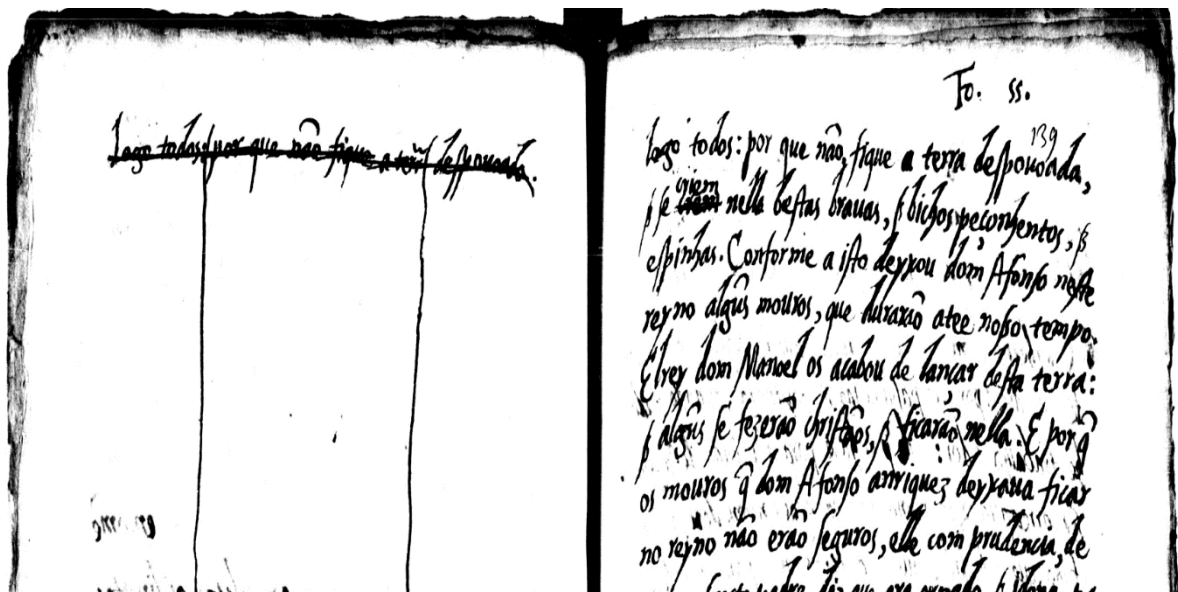 logo todos: por que não fique a terra despouoada.
Fo. 55.
139
logo todos: por que não fique a terra despouoada,
criem
& se nella bestas brauas, & bichos peçonhentos, &
espinhas. Conforme a isto deyxou dom Afonso neste
reyno algũs mouros, que durarão atee nosso tempo.
Elrey dom Manoel os acabou de lançar desta terra:
& algũs se fezerão christãos, & ficarão nella. E por q̃
os mouros q̃ dom Afonso anriquez deyxaua ficar
no reyno não erão seguros, elle com prudencia, de